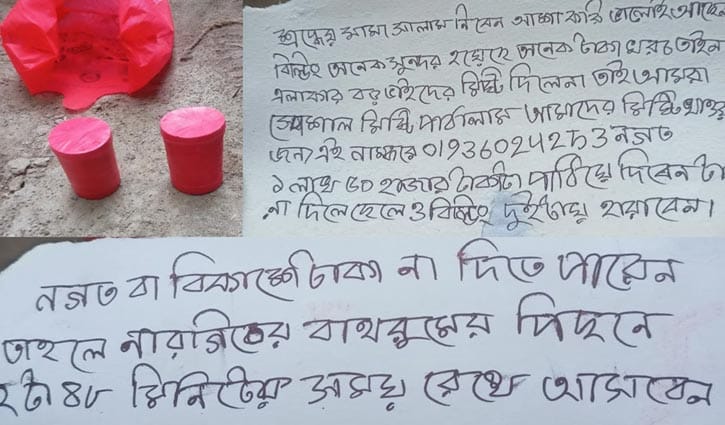 শ্রদ্ধেয় মামা সালাম নিবেন আশা করি ভালোই আছেন
বিল্ডিং অনেক সুন্দর হয়েছে অনেক টাকা খরচ
এলাকার বড় ভাইদের মিষ্টি দিলেন না তাই আমরা
স্পেশাল মিষ্টি পাঠালাম আমাদের মিষ্টি খাওয়ার
জন্য এই নাম্বারে নগত
১ লাখ ৫০ হাজার টাকা পাঠিয়ে দিবেন টা
না দিলে ছেলে ও বিল্ডিং দুইটায় হারাবেন।
নগত বা বিকাশে টাকা না দিতে পারেন
তাহলে বাথরুমের পিছনে
২টা ৪৮ মিনিটের সময় রেখে আসবেন